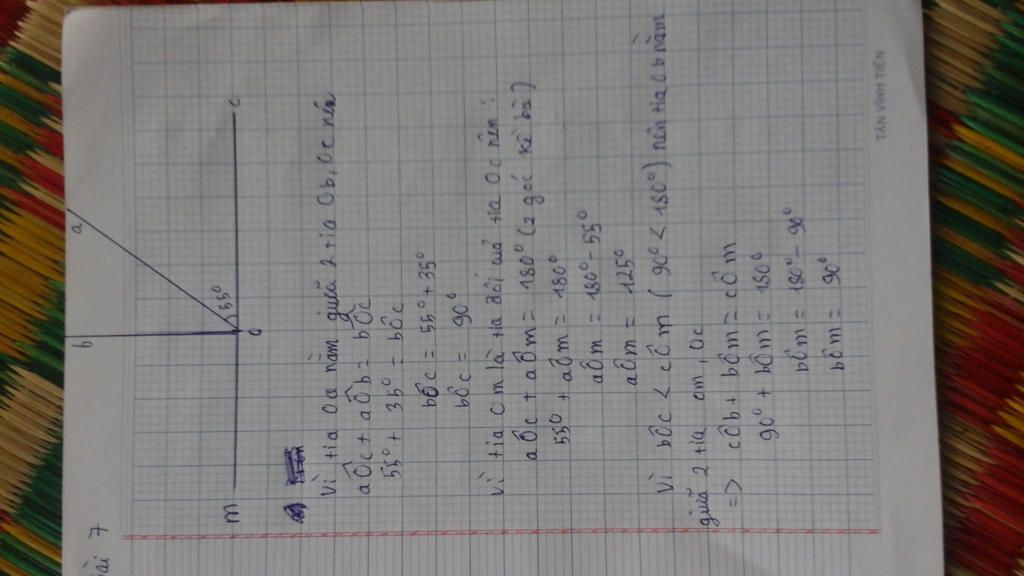 ài 7
b
a
55°
m
O
c
Vì tia Oa nằm giữa 2 tia Ob, Oc nên
aÔc + aÔb = bÔc
55° + 35° = bÔc
bÔc = 55° + 35°
bÔc = 90°
Vì tia Om là tia đối của tia Oc nên:
aÔc + aÔm = 180° (2 góc kề bù)
55° + aÔm = 180°
aÔm = 180° - 55°
aÔm = 125°
Vì bÔc < cÔm (90° < 180°) nên tia Ob nằm
giữa 2 tia Om, Oc
=> cÔb + bÔm = cÔm
90° + bÔm = 180°
bÔm = 180° - 90°
bÔm = 90°
TÂN VĨNH TIẾN